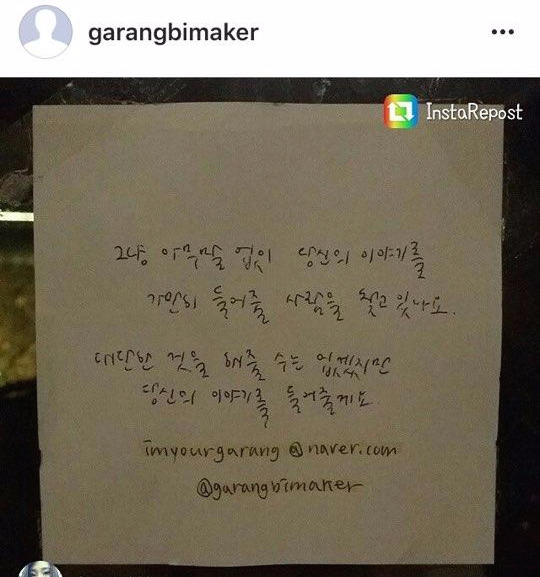 garangbimaker
InstaRepost
그냥 아무말 없이 당신의 이야기를
가만히 들어줄 사람을 찾고 있나요.
대단한 것을 해줄 수는 없겠지만
당신의 이야기를 들어줄게요.
imyourgarang@naver.com
@garangbimaker